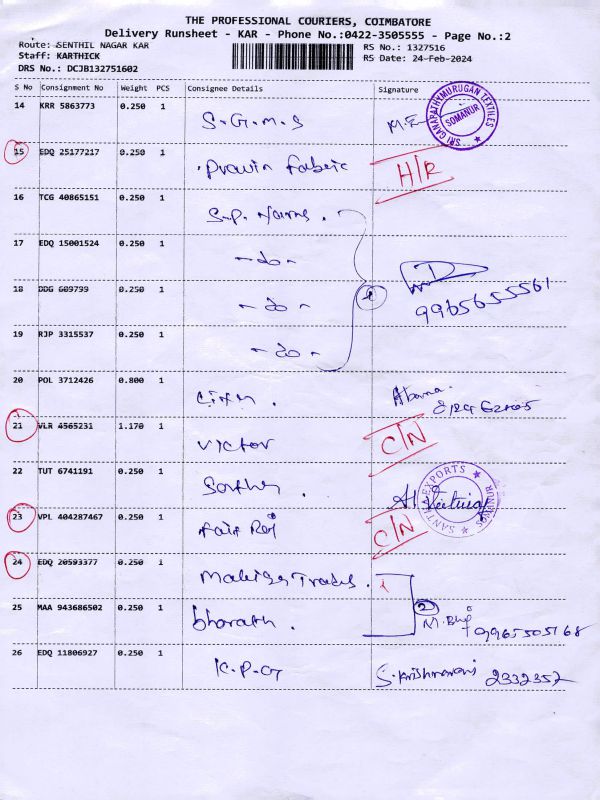 THE PROFESSIONAL COURIERS, COIMBATORE
Delivery Runsheet - KAR - Phone No.:0422-3505555 - Page No.:2
Route: SENTHIL NAGAR KAR
RS No.: 1327516
Staff: KARTHICK
RS Date: 24-Feb-2024
DRS No.: DCJB132751602
S No Consignment No Weight PCS Consignee Details Signature
14 KRR 5863773 0.250 1 S.G.M.S
SRI GANAPATHYMURUGAN TEXTILES SOMANUR
15 EDQ 25177217 0.250 1 Pravin Fabric H/R
16 TCG 40865151 0.250 1 S.P.
17 EDQ 15001524 0.250 1 -do-
18 DDG 609799 0.250 1 -do- 9965655561
19 RJP 3315537 0.250 1 -do-
20 POL 3712426 0.800 1
21 VLR 4565231 1.170 1 Victor C/N
22 TUT 6741191 0.250 1
EXPORTS
23 VPL 404287467 0.250 1 C/N
24 EDQ 20593377 0.250 1
25 MAA 943686502 0.250 1 bharath. 2 9965505168
26 EDQ 11806927 0.250 1 K.P.G 2332352